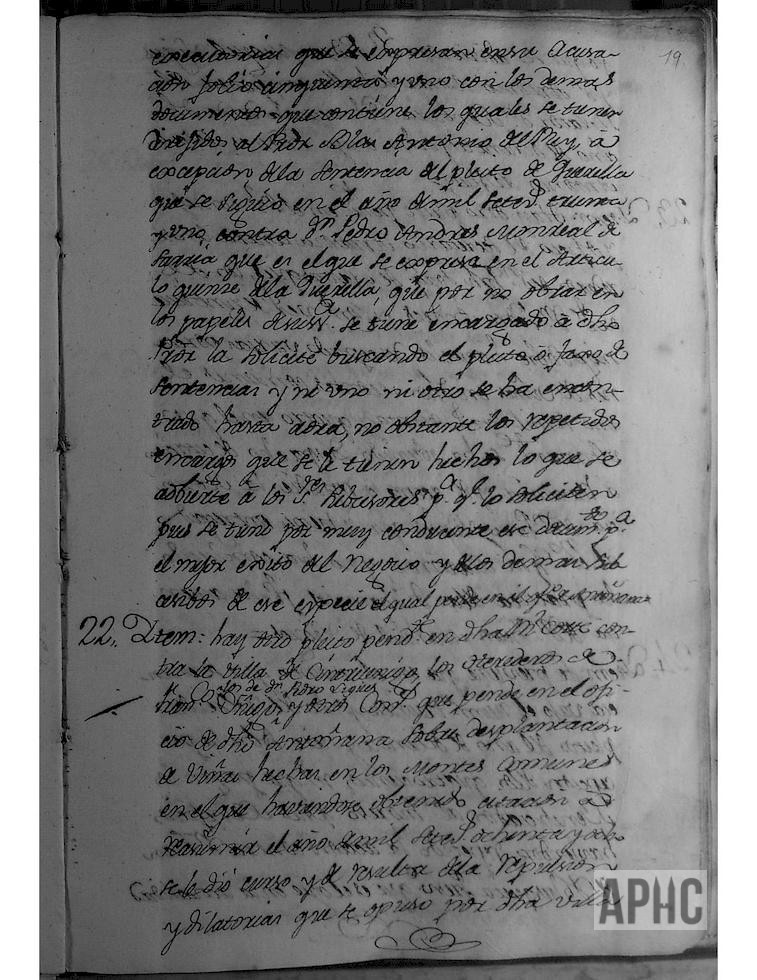 19
executorias que se expresan en su Acusa-
cion folio cinquenta y uno con los demas
documentos que contiene los quales se tienen
al Prôr Blas Antonio del Rey, à
excepcion dela Sentencia del pleito de Querella
que se siguio en el año de mil Setes. treinta
y uno contra Dn. Pedro Andres Munreal de
Sarria que es el que se expresa en el Articu-
lo quinze dela Querella, que por no obrar en
los papeles se tiene encargado à dho
Prôr la solicite buscando el pleito ô faxo de
Sentencias y ni uno ni otro se ha encon-
trado hasta aora, no obstante los repetidos
encargos que se le tienen hechos lo que se
adbierte à los Sres. pa. qe. lo soliciten
pues se tuno por muy conducente ese documto. pa.
el mejor exito del Negocio y delos demas Sub
cesibos de ese especie el qual pende en el ofo. de Antoñana
22. Item: hay otro pleito pende. en dha Rl. Corte con-
tra la Villa de Cintruenigo, los Herederos de
los de dn. Pedro Ligues
y otros Conss. que pende en el ofi-
cio de dho Antoñana sobre desplantacion
de Viñas hechas en los Montes Comunes
en el que haviendose obtenido citacion à
reasumir el año de mil Setes. ochenta y ocho
se le diò curso y de resulta dela repulsion
y dilatorias que se opuso por dha Villa
APHC